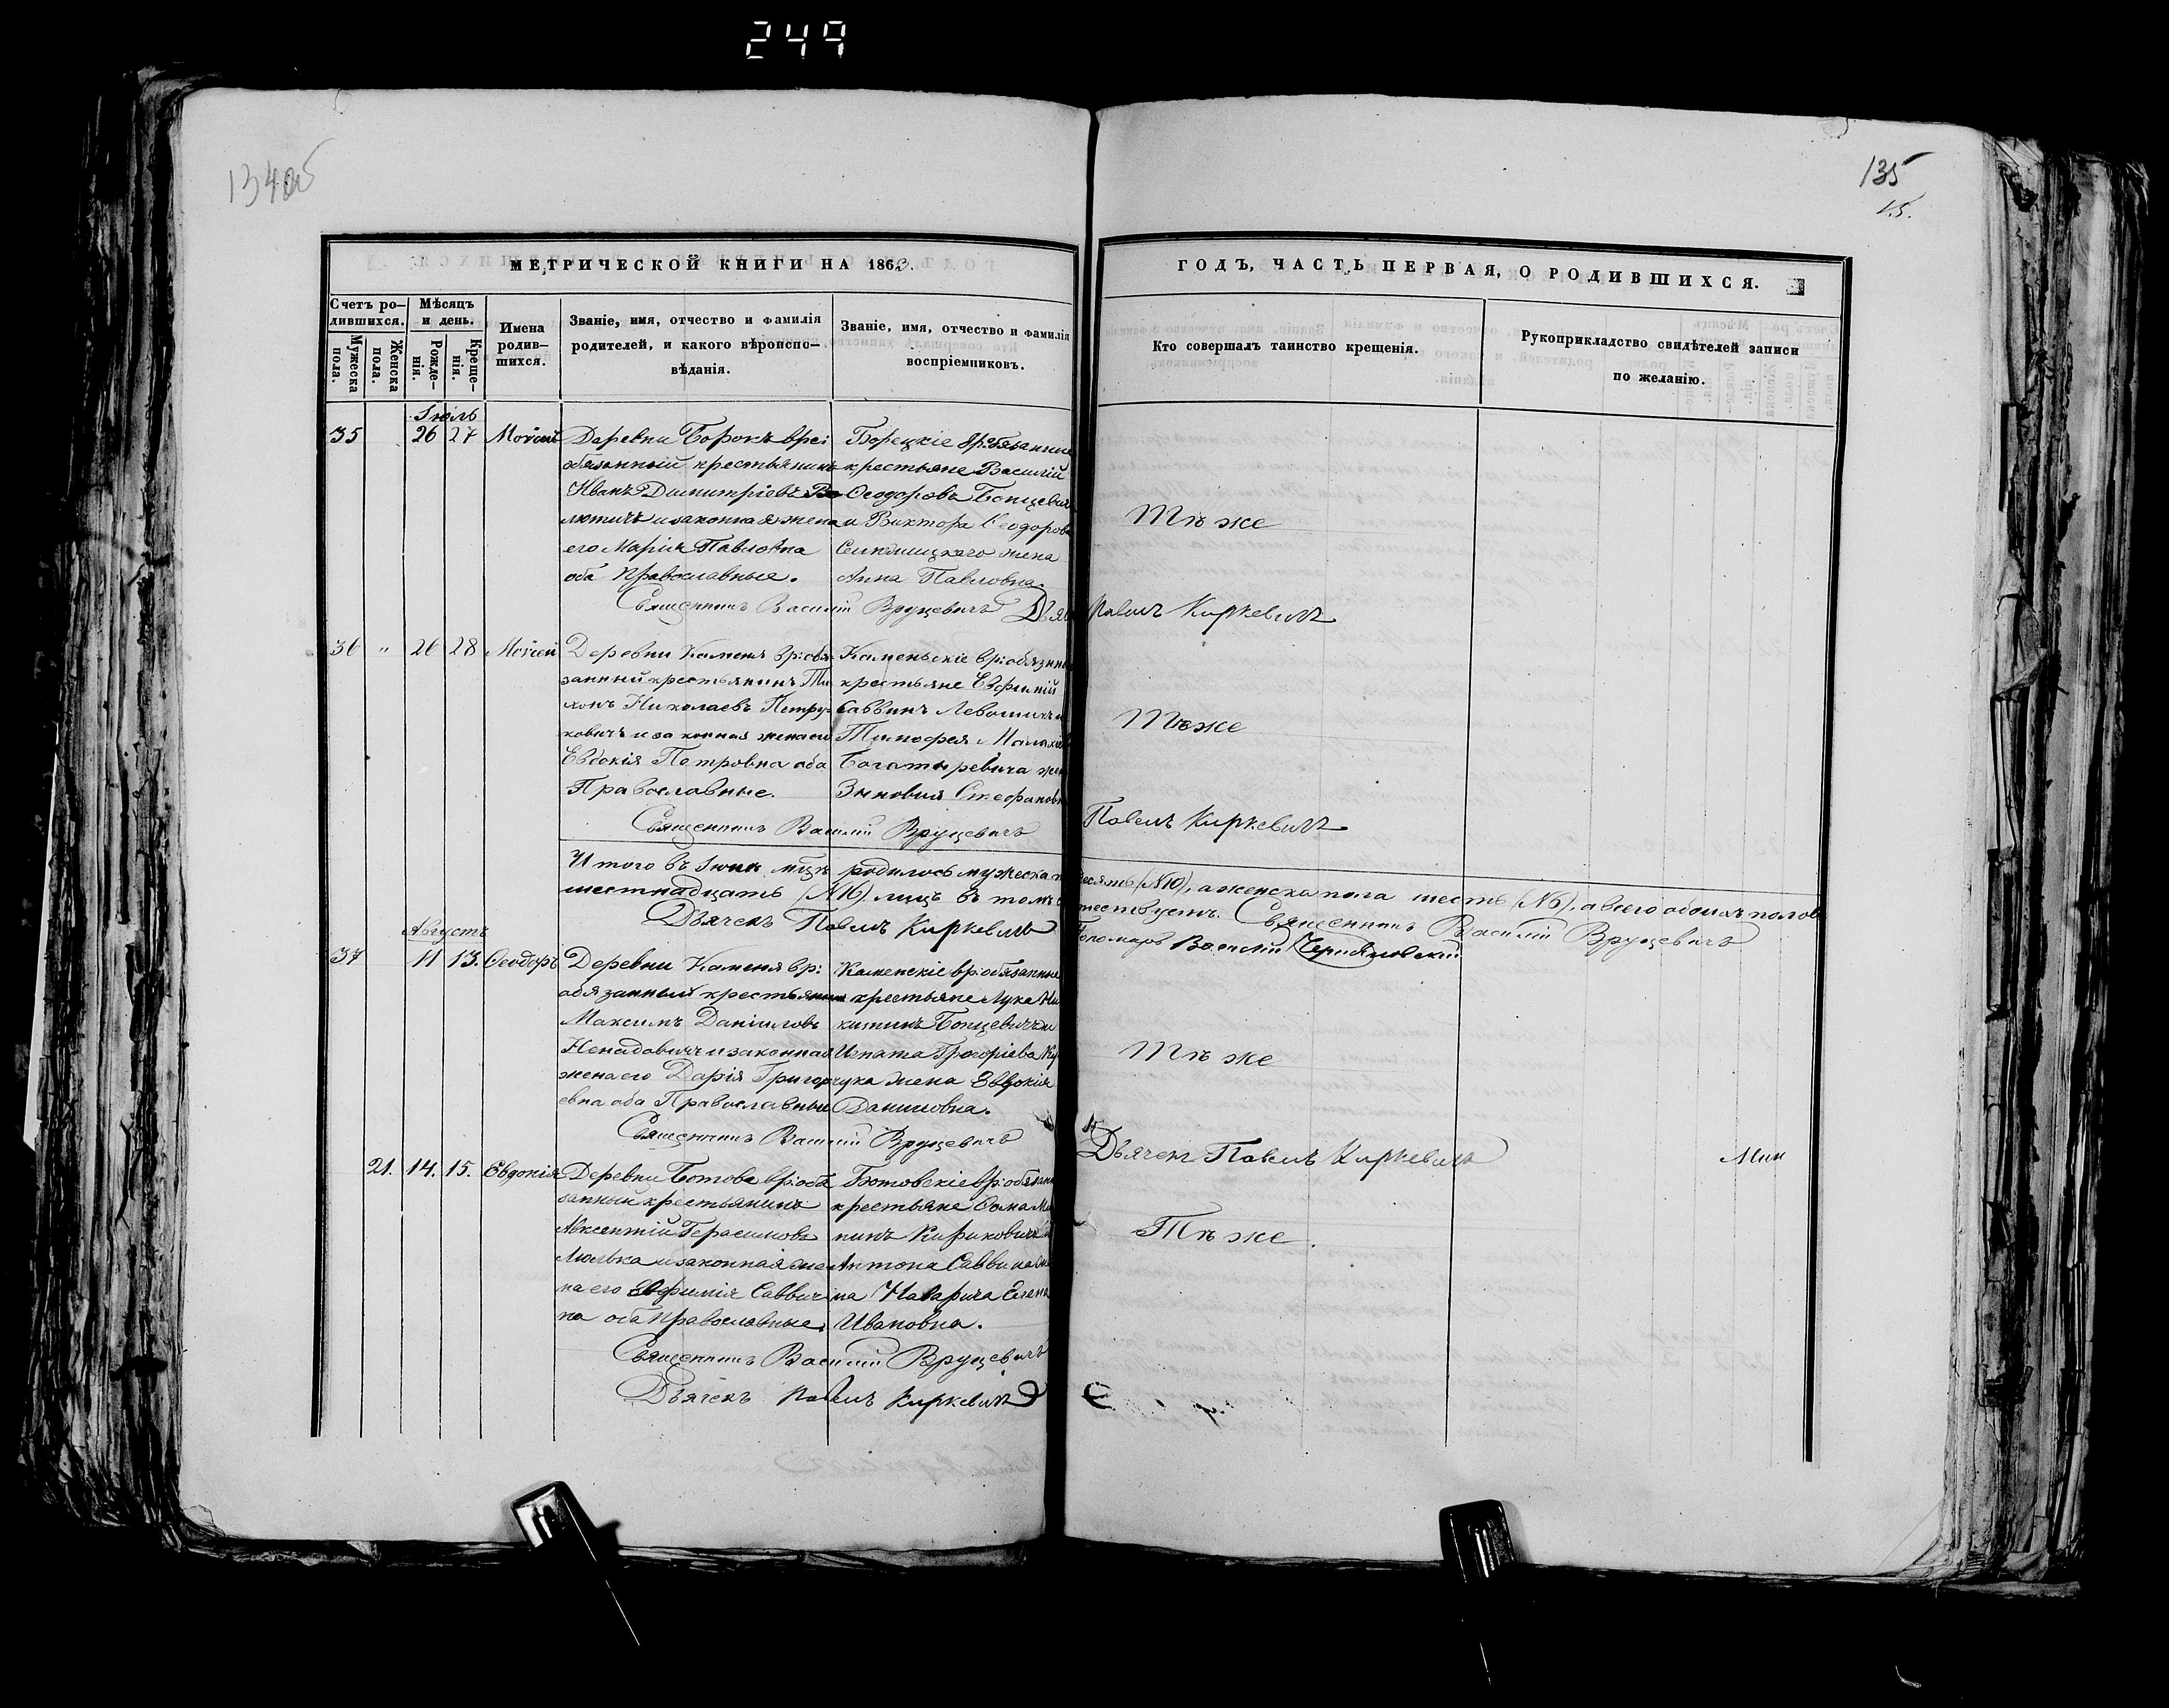 249
134об
135
15.
МЕТРИЧЕСКОЙ КНИГИ НА 1863.
Счетъ ро-
дившихся.
Мужеска
пола.
Женска
пола.
Мѣсяцъ
и день.
Рожде-
нія.
Креще-
нія.
Имена
родив-
шихся.
Званіе, имя, отчество и фамилія
родителей, и какого вѣроиспо-
вѣданія.
Званіе, имя, отчество и фамилія
воспріемниковъ.
ГОДЪ, ЧАСТЬ ПЕРВАЯ, О РОДИВШИХСЯ.
Кто совершалъ таинство крещенія.
Рукоприкладство свидѣтелей записи
по желанію.
Іюль
35 26 27 Моѵсей
Деревни Борокъ вре:
обязанный крестьянинъ
Иванъ Димитріевъ Во
лютичъ и законная жена
его Марія Павловна
оба православные.
Борецкіе вр: обязанные
крестьяне Василій
Ѳеодоровъ Бопцевичъ
и Виктора Ѳеодорова
жена
Анна Павловна.
Тѣ же
Священникъ Василій Вруцевичъ
Павелъ Киркевичъ
36 " 26 28 Моѵсей
Деревни Каменя вр: обя-
занный крестьянинъ Ти-
хонъ Николаевъ Петру-
ковичъ и законная жена его
Евдокія Петровна оба
Православные.
Каменьскіе вр: обязанные
крестьяне Евфимій
Саввинъ Левошичъ и
Тимофея Малахіева
Богатыревича жена
Зиновія Стефановна
Тѣже
Священникъ Василій Вруцевичъ
Павелъ Киркевичъ
Итого въ Іюлѣ мцѣ родилось мужеска п десять (№10), а женска пола шесть (№6), а всего обоихъ половъ
шестнадцать (№16) лицъ въ томъ Священникъ Василій Вруцевичъ
Дьячекъ Павелъ Киркевичъ Пономарь Василій
Августъ
37 11 13. Ѳеодоръ
Деревни Каменя вр:
обязанный крестьянинъ
Максимъ Даніиловъ
Ненадовичъ и законная
жена его Дарія Григорі
евна оба Православные
Каменскіе вр: обязанные
крестьяне Лука Ни
китинъ Бопцевичъ и
Игната Григоріева Ку
чука жена Евдокія
Даниловна.
Тѣ же
Священникъ Василій Вруцевичъ
Дьячекъ Павелъ Киркевичъ
21. 14. 15. Евдокія
Деревни Ботова вр: обя
занный крестьянинъ
Авксентій Герасимовъ
Люлька и законная же
на его Евфимія Саввич
на оба православные.
Ботовскіе вр: обязанные
крестьяне Ѳома Ми
нинъ Кириковичъ и
Антона Саввина
Елена
Ивановна.
Тѣ же.
Священникъ Василій Вруцевичъ
Дьячекъ Павелъ Киркевичъ